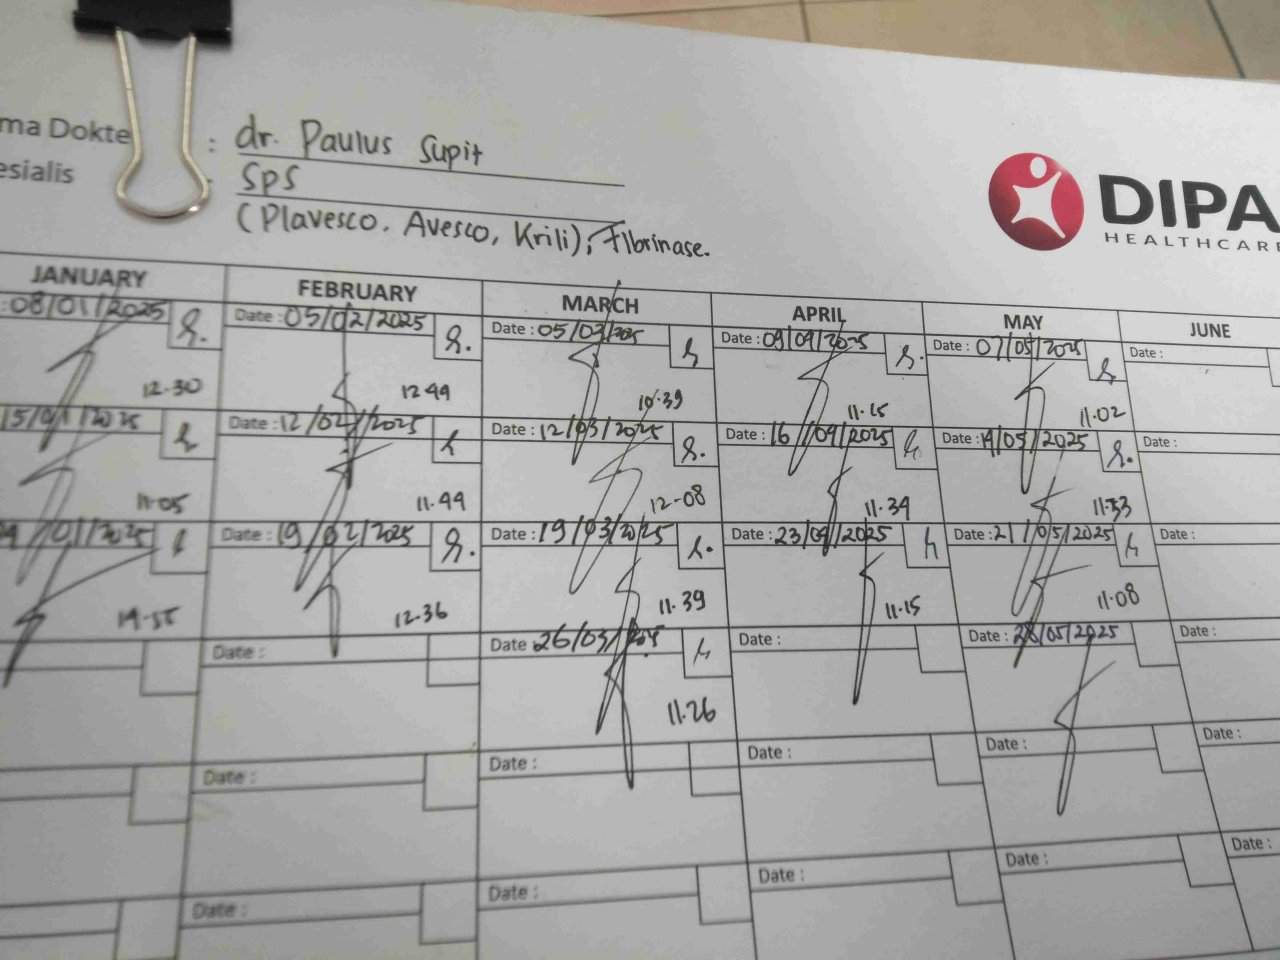 ma Dokte : dr. Paulus Supit
esialis : SpS
(Plavesco, Avesco, Krili), Fibrinase.
DIPA
HEALTHCARE
JANUARY FEBRUARY MARCH APRIL MAY JUNE
: 08/01/2025 Date : 05/02/2025 Date : 05/03/2025 Date : 09/04/2025 Date : 07/05/2025 Date :
12.30 12.44 10.39 11.15 11.02
15/01/2025 Date : 12/02/2025 Date : 12/03/2025 Date : 16/04/2025 Date : 14/05/2025 Date :
11.05 11.44 12.08 11.34 11.33
/01/2025 Date : 19/02/2025 Date : 19/03/2025 Date : 23/04/2025 Date : 21/05/2025 Date :
14.55 12.36 11.39 11.15 11.08
Date : Date 26/03/2025 Date : Date : 28/05/2025 Date :
11.26
Date : Date : Date : Date : Date :
Date : Date : Date : Date : Date :